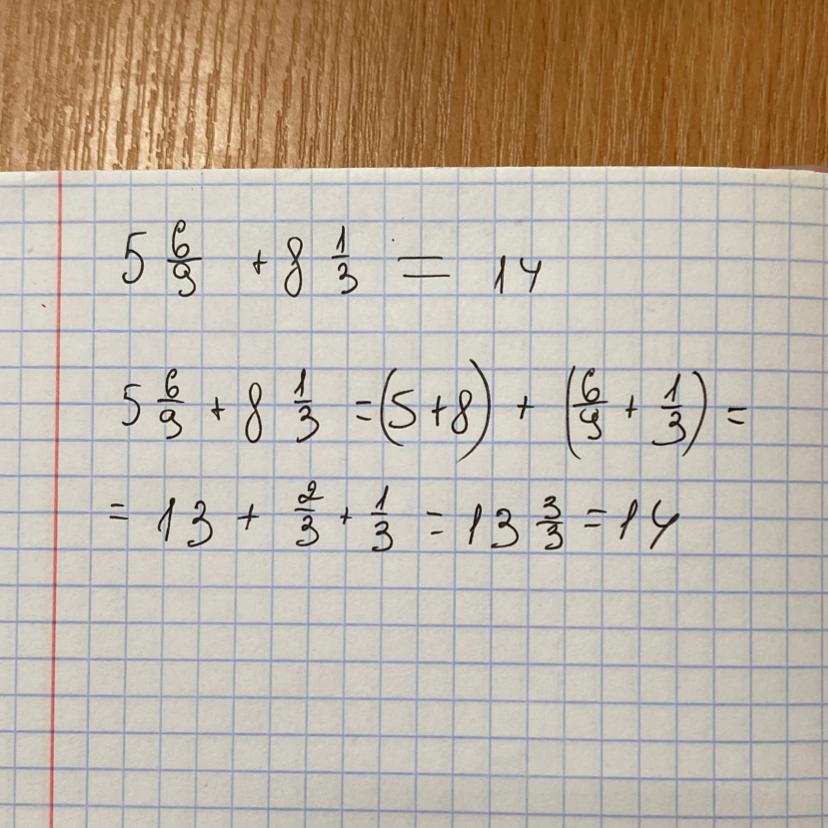 5 6/9 + 8 1/3 = 14
5 6/9 + 8 1/3 = (5 + 8) + (6/9 + 1/3) =
= 13 + 2/3 + 1/3 = 13 3/3 = 14